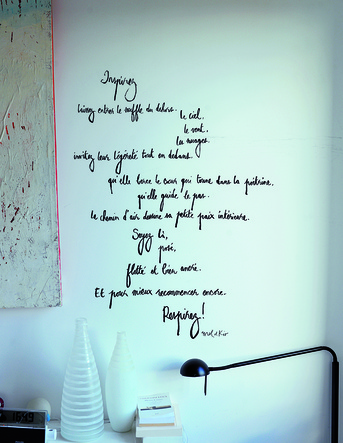 Inspirez
laissez entrer le souffle du dehors.
le ciel.
le vent.
les nuages.
invitez leur légèreté tout en dedans.
qu'elle berce le cœur qui tonne dans la poitrine.
qu'elle guide le pas.
le chemin d'air dessine sa petite paix intérieure.
Soyez là,
posé,
flotté et bien ancré.
Et pour mieux recommencer encore.
Respirez!
Mel et Kio